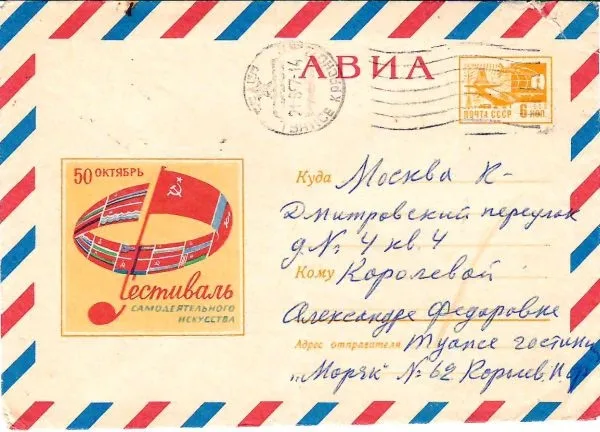 АВИА
ПОЧТА СССР 6 КОП
50 ОКТЯБРЬ
Фестиваль
САМОДЕЯТЕЛЬНОГО
ИСКУССТВА
Куда Москва К-
Дмитровский переулок
д. № 4 кв. 4
Кому Королевой
Александре Федоровне
Адрес отправителя Туапсе гостини
"Моряк" № 62 Королев.